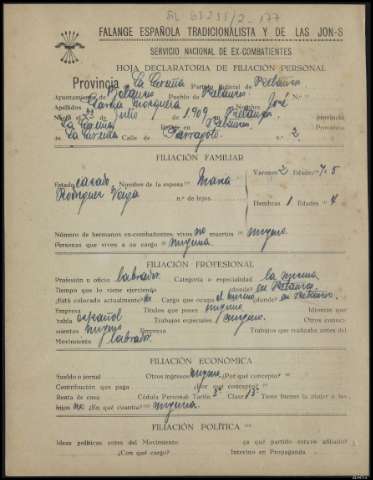 FALANGE ESPAÑOLA TRADICIONALISTA Y DE LAS JON-S
SERVICIO NACIONAL DE EX-COMBATIENTES
HOJA DECLARATORIA DE FILIACIÓN PERSONAL
Provincia La Coruña Partido judicial de Betanzos
Ayuntamiento de Betanzos Pueblo de Betanzos N.º
Apellidos García Mosquera Nombre José
julio de 1909 Betanzos Provincia
La Coruña Betanzos Provincia
La Coruña Calle de N.º 2
FILIACIÓN FAMILIAR
Varones 2 Edades 7, 5
Estado casado Nombre de la esposa María
Rodríguez n.º de hijos
Hembras 1 Edades 4
Número de hermanos ex-combatientes vivos no muertos ninguno
Personas que viven a su cargo ninguna
FILIACIÓN PROFESIONAL
Profesión u oficio labrador Categoría o especialidad la misma
Tiempo que lo viene ejerciendo ¿dónde? en Betanzos
¿Está colocado actualmente? Cargo que ocupa el mismo ¿dónde? en Betanzos
Empresa Títulos que posee ninguno Idiomas que
habla español Trabajos especiales ninguno Otros conoci-
mientos ninguno Empresa Trabajos que realizaba antes del
Movimiento labrador
FILIACIÓN ECONÓMICA
Sueldo o jornal Otros ingresos ninguno ¿Por qué concepto?
Contribución que paga ¿por qué concepto?
Renta de casa Cédula Personal Tarifa 3ª Clase 13ª Tiene bienes la mujer o los
hijos no ¿En qué cuantía? ninguna
FILIACIÓN POLÍTICA
Ideas políticas antes del Movimiento ¿a qué partido estuvo afiliado?
¿Con qué cargo? Intervino en Propaganda